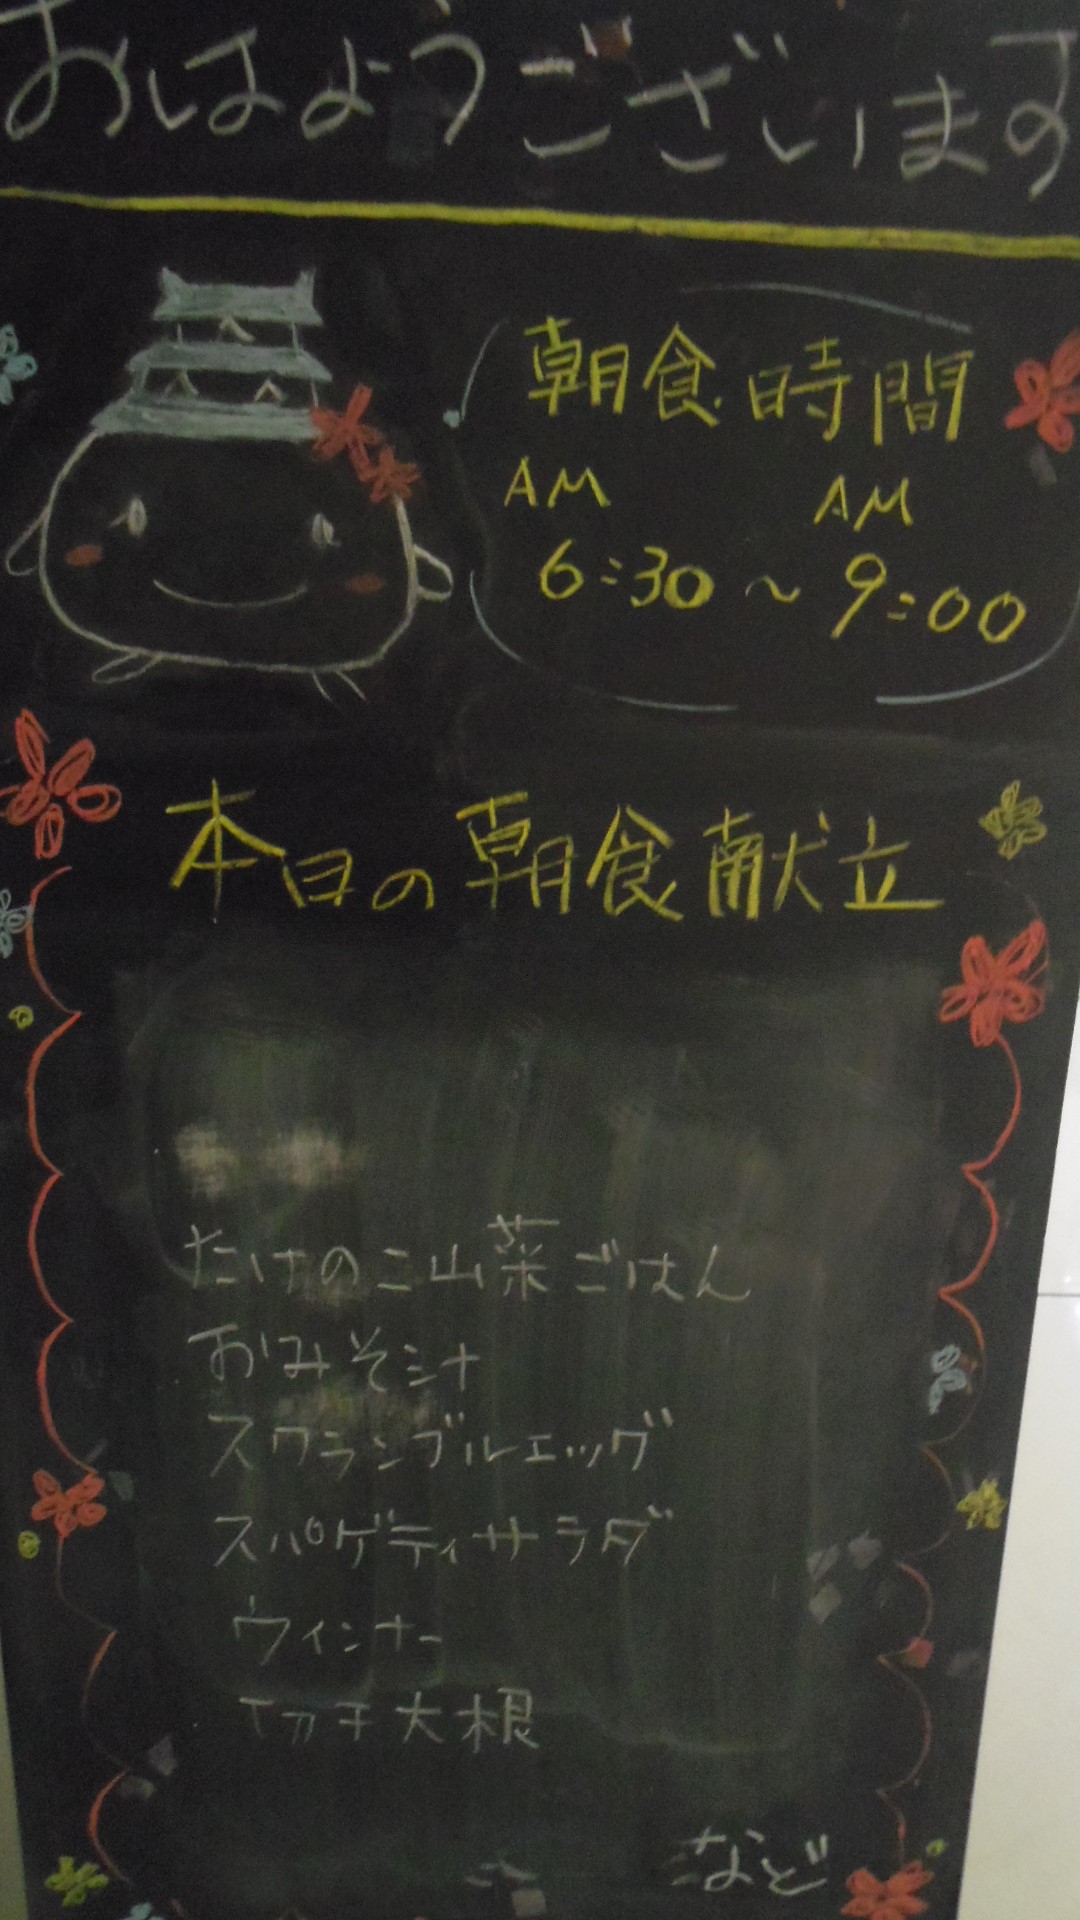 おはようございます
朝食時間
AM AM
6:30～9:00
本日の朝食献立
たけのこ山菜ごはん
おみそ汁
スクランブルエッグ
スパゲティサラダ
ウィンナー
大根
など